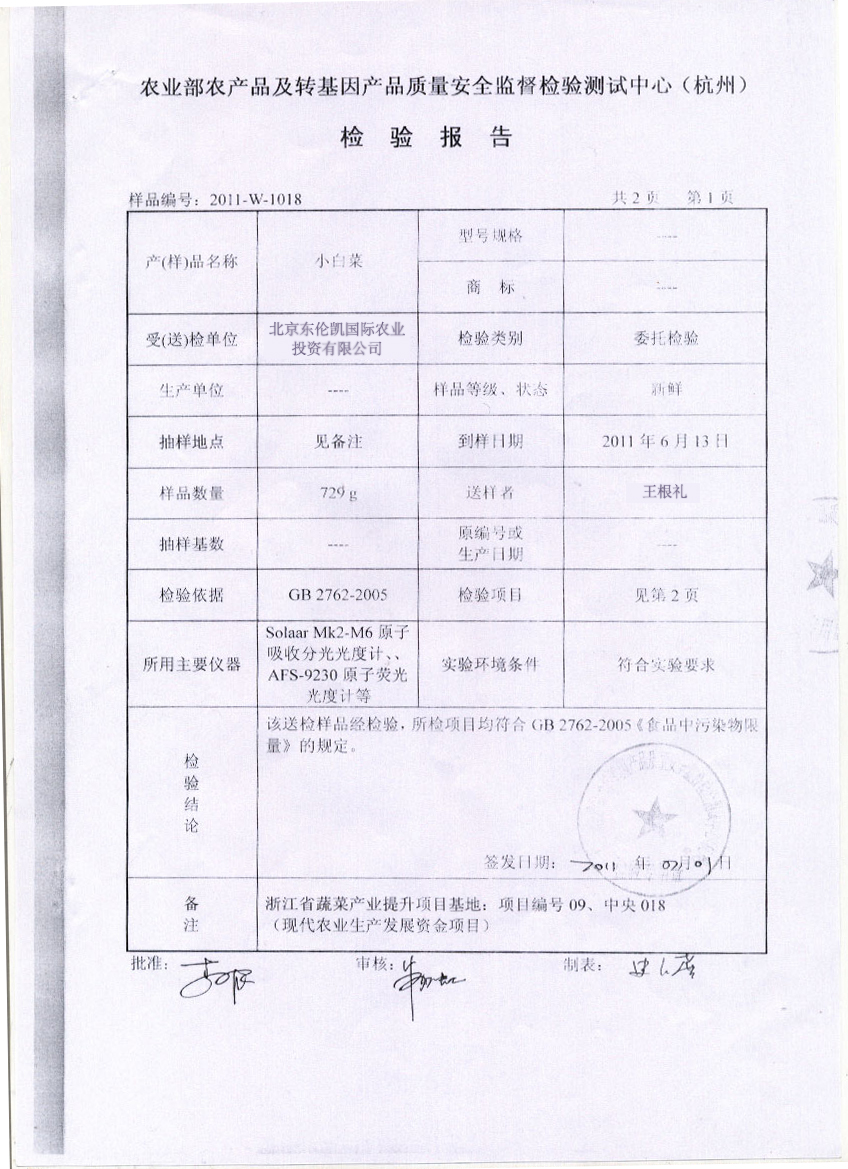 农业部农产品及转基因产品质量安全监督检验测试中心（杭州）
检 验 报 告
样品编号：2011-W-1018 共 2 页 第 1 页
产(样)品名称 小白菜 型号规格 ----
商 标 ----
受(送)检单位 北京东伦凯国际农业
投资有限公司 检验类别 委托检验
生产单位 ---- 样品等级、状态 新鲜
抽样地点 见备注 到样日期 2011 年 6 月 13 日
样品数量 729 g 送样者 王根礼
抽样基数 ---- 原编号或
生产日期 ----
检验依据 GB 2762-2005 检验项目 见第 2 页
所用主要仪器 Solaar Mk2-M6 原子
吸收分光光度计、、
AFS-9230 原子荧光
光度计等 实验环境条件 符合实验要求
检
验
结
论
该送检样品经检验，所检项目均符合 GB 2762-2005《食品中污染物限
量》的规定。
签发日期： 2011 年 07月01日
备
注
浙江省蔬菜产业提升项目基地：项目编号 09、中央 018
（现代农业生产发展资金项目）
批准： 审核： 制表：